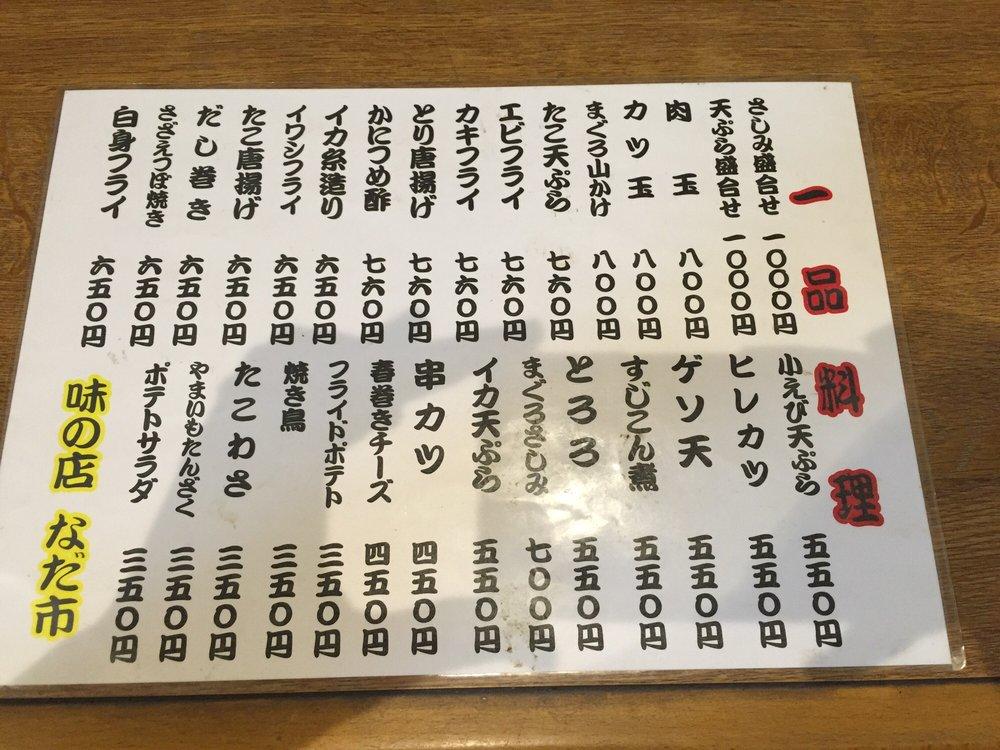 一品料理
さしみ盛合せ 一〇〇〇円
天ぷら盛合せ 一〇〇〇円
肉玉 八〇〇円
カツ玉 八〇〇円
まぐろ山かけ 八〇〇円
たこ天ぷら 七六〇円
エビフライ 七六〇円
カキフライ 七六〇円
とり唐揚げ 七六〇円
かにつめ酢 七六〇円
イカ糸造り 六五〇円
イワシフライ 六五〇円
たこ唐揚げ 六五〇円
だし巻き 六五〇円
さざえつぼ焼き 六五〇円
白身フライ 六五〇円
小えび天ぷら 五五〇円
ヒレカツ 五五〇円
ゲソ天 五五〇円
すじこん煮 五五〇円
とろろ 五五〇円
まぐろさしみ 七〇〇円
イカ天ぷら 五五〇円
串カツ 四五〇円
春巻きチーズ 四五〇円
フライドポテト 三五〇円
焼き鳥 三五〇円
たこわさ 三五〇円
やまいもたんざく 三五〇円
ポテトサラダ 三五〇円
味の店 なだ市